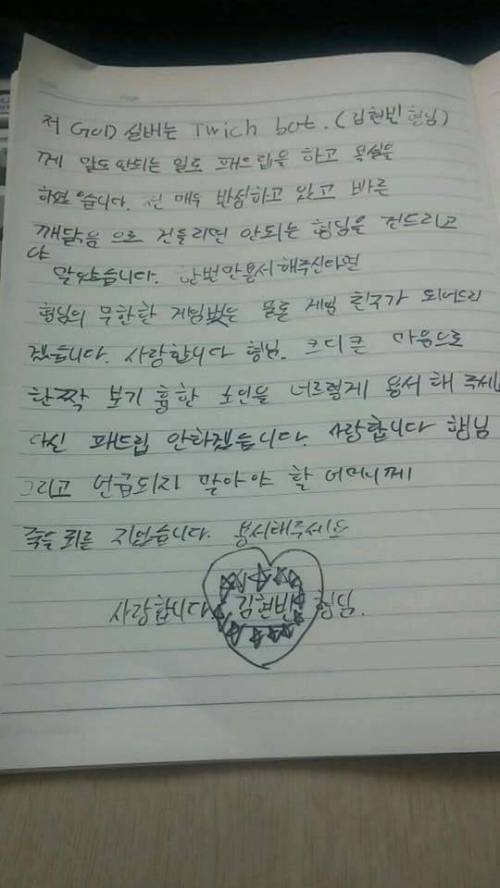 저 GOD 실버는 Twich bot. (김현빈 형님)
께 말도 안되는 일로 패드립을 하고 욕설을
하였습니다. 전 매우 반성하고 있고 바른
깨닭음 으로 건들리면 안되는 형님을 건드리고
야
말았습니다. 한번만 용서해주신다면
형님의 무한한 게임 물론 게임 친구가 되어드리
겠습니다. 사랑합니다 형님. 크디큰 마음으로
한짝 보기 흉한 소인을 너르렇게 용서해 주세
다신 패드립 안하겠습니다. 사랑합니다 형님
그리고 언급되지 말아야 할 어머니께
죽을 죄를 지었습니다. 용서해주세요
사랑합니다. 김현빈 형님.